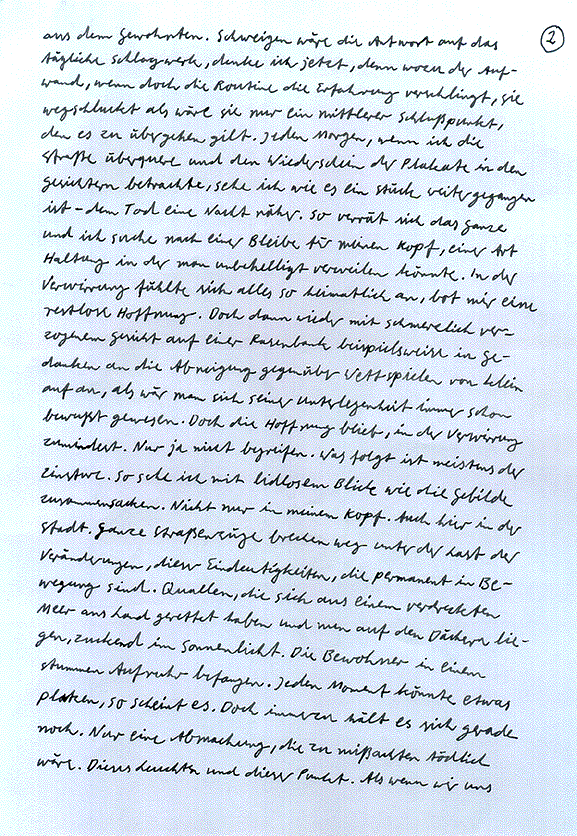 2
aus dem Gewohnten. Schweigen wäre die Antwort auf das
tägliche Schlagwerk, denke ich jetzt, denn wozu der Auf-
wand, wenn doch die Routine die Erfahrung verschlingt, sie
wegschluckt als wäre sie nur ein mittlerer Schlußpunkt,
den es zu übergehen gilt. Jeden Morgen, wenn ich die
Straße überquere und den Wiederschein der Plakate in den
Gesichtern betrachte, sehe ich wie es ein Stück weitergegangen
ist – dem Tod eine Nacht näher. So verrät sich das Ganze
und ich suche nach einer Bleibe für meinen Kopf, einer Art
Haltung in der man unbehelligt verweilen könnte. In der
Verwirrung fühlte sich alles so heimatlich an, bot mir eine
restlose Hoffnung. Doch dann wieder mit schmerzlich ver-
zogenem Gesicht auf einer Rasenbank beispielsweise in Ge-
danken an die Abneigung gegenüber Wettspielen von klein
auf an, als wär man sich seiner Unterlegenheit immer schon
bewußt gewesen. Doch die Hoffnung blieb, in der Verwirrung
zumindest. Nur ja nicht begreifen. Was folgt ist meistens der
Einsturz. So sehe ich mit lidlosem Blick wie die Gebilde
zusammensacken. Nicht nur in meinem Kopf. Auch hier in der
Stadt. Ganze Straßenzüge brechen weg unter der Last der
Veränderungen, dieser Eindeutigkeiten, die permanent in Be-
wegung sind. Quallen, die sich aus einem verdreckten
Meer ans Land gerettet haben und nun auf den Dächern lie-
gen, zuckend im Sonnenlicht. Die Bewohner in einem
stummen Aufruhr befangen. Jeden Moment könnte etwas
platzen, so scheint es. Doch immerzu hält es sich gerade
noch. Nur eine Abmachung, die zu mißachten tödlich
wäre. Dieses Leuchten und dieser Punkt. Als wenn wir uns